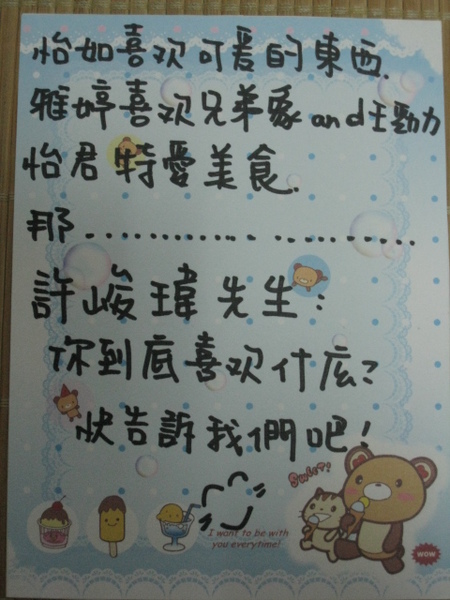 怡如喜欢可爱的東西.
雅婷喜欢兄弟象and王勁力
怡君特愛美食.
那......................
許峻瑋先生:
你到底喜欢什庅?
快告訴我們吧!
Sweet!
I want to be with
you everytime!
WOW